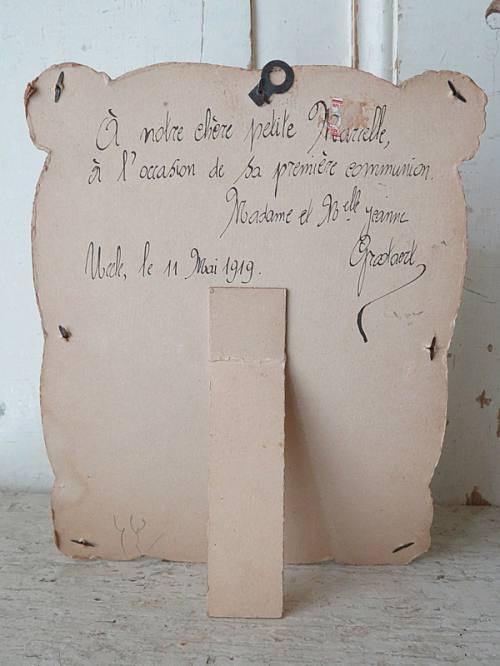 À notre chère petite Marcelle,
à l'occasion de sa première communion.
Madame et Melle Jeanne
Grootaert
Uccle, le 11 Mai 1919.